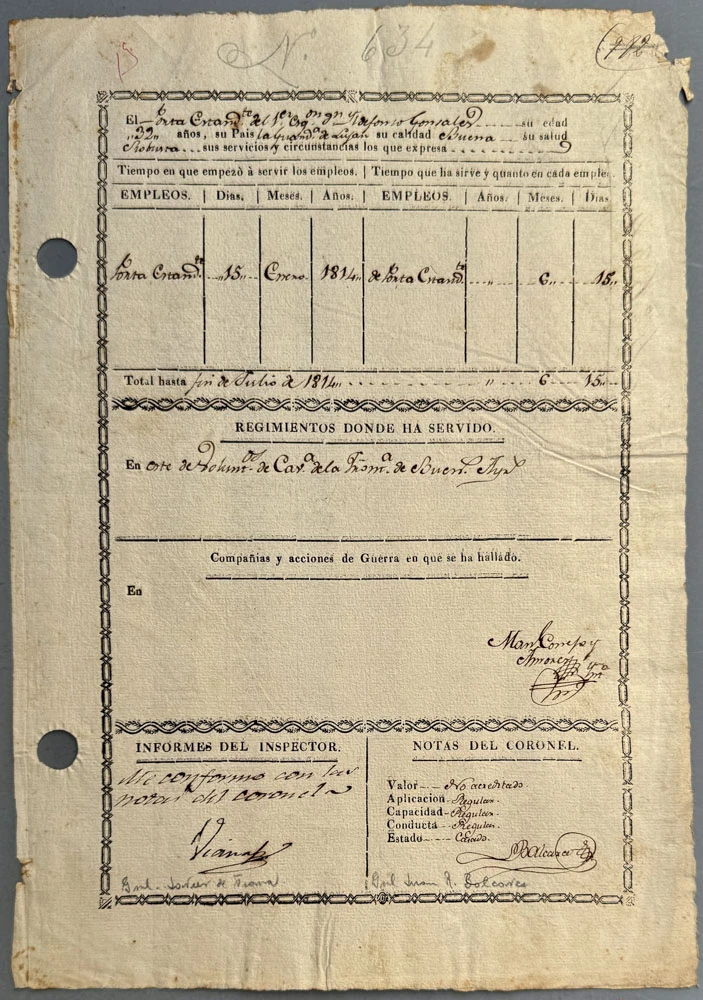 Nº 634
El Porta Estandte del 1er Esqon Dn Ildefonso Gonsales su edad
"32" años, su Pais la Guarda de Lujan su calidad Buena su salud
Robusta sus servicios y circunstancias los que expresa
Tiempo en que empezó à servir los empleos. Tiempo que ha sirve y quanto en cada empleo
EMPLEOS. Dias. Meses. Años. EMPLEOS. Años. Meses. Dias
Porta Estandte 15 Enero 1814 de Porta Estandte " 6 15
Total hasta fin de Julio de 1814 " 6 15
REGIMIENTOS DONDE HA SERVIDO.
En este de Voluntos de Cava de la Fronta de Buens Ays
Compañias y acciones de Guerra en que se ha hallado.
En
INFORMES DEL INSPECTOR.
Me conformo con las
notas del coronel
Viana
Gral. Javier de Viana
NOTAS DEL CORONEL.
Valor No acreditado.
Aplicacion Regular.
Capacidad Regular.
Conducta Regular.
Estado Casado.
Balcarce
Gral Juan R. Balcarce